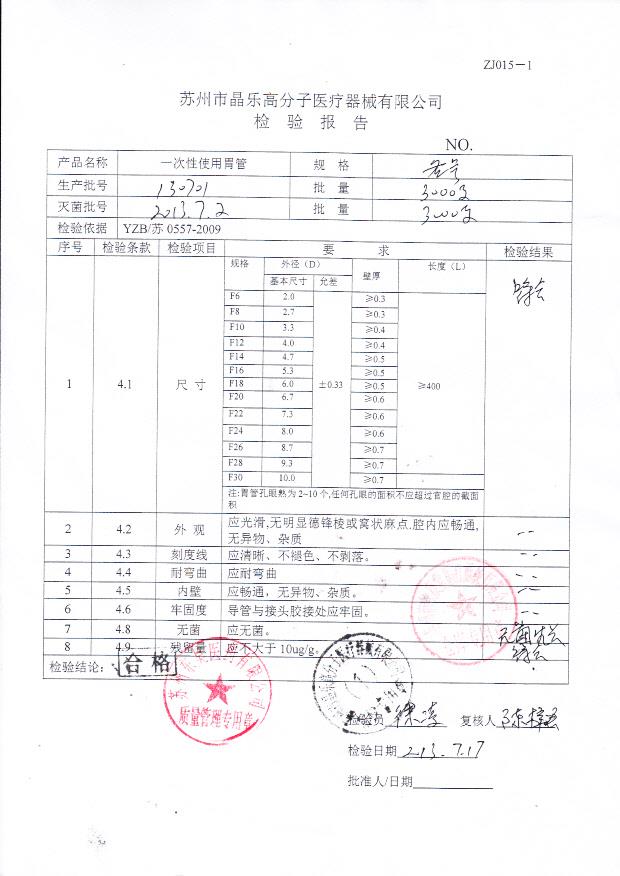 ZJ015-1
苏州市晶乐高分子医疗器械有限公司
检 验 报 告
NO.
产品名称 一次性使用胃管 规 格
生产批号 130701 批 量 3000支
灭菌批号 2013.7.2 批 量 3000支
检验依据 YZB/苏 0557-2009
序号 检验条款 检验项目 要 求 检验结果
规格 外径（D） 壁厚 长度（L）
基本尺寸 允差
F6 2.0 ≥0.3
F8 2.7 ≥0.3
F10 3.3 ≥0.4
F12 4.0 ≥0.4
F14 4.7 ≥0.5
F16 5.3 ≥0.5
1 4.1 尺 寸 F18 6.0 ±0.33 ≥0.5 ≥400
F20 6.7 ≥0.6
F22 7.3 ≥0.6
F24 8.0 ≥0.6
F26 8.7 ≥0.7
F28 9.3 ≥0.7
F30 10.0 ≥0.7
注:胃管孔眼熟为2~10个,任何孔眼的面积不应超过官腔的截面积
2 4.2 外 观 应光滑,无明显德锋棱或窝状麻点.腔内应畅通,
无异物、杂质
3 4.3 刻度线 应清晰、不褪色、不剥落。
4 4.4 耐弯曲 应耐弯曲
5 4.5 内壁 应畅通，无异物、杂质。
6 4.6 牢固度 导管与接头胶接处应牢固。
7 4.8 无菌 应无菌。
8 4.9 残留量 应不大于10ug/g。
检验结论： 合格
质量管理专用章
检验员 复核人
检验日期 2013.7.17
批准人/日期